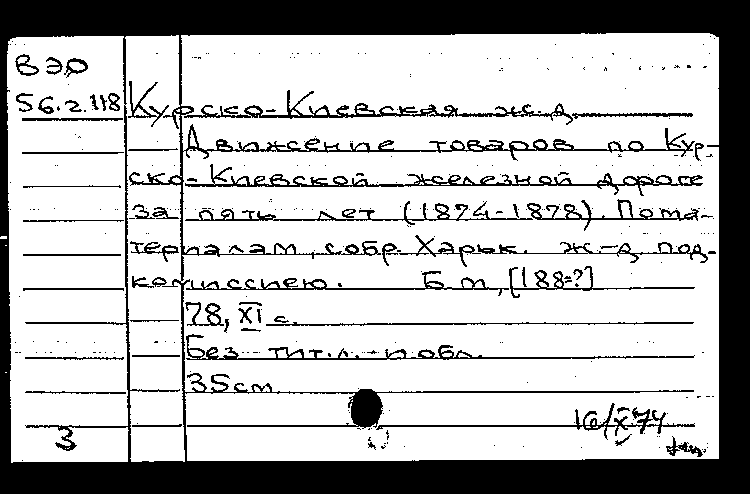 ВЭО
56.2.118 Курско-Киевская ж.д.
Движение товаров по Кур-
ско-Киевской железной дороге
за пять лет (1874-1878). По ма-
териалам, собр. Харьк. ж.-д. под-
комиссиею. Б.м., [188-?]
78, XI с.
Без тит.л. и обл.
35 см.
3
16/X 74